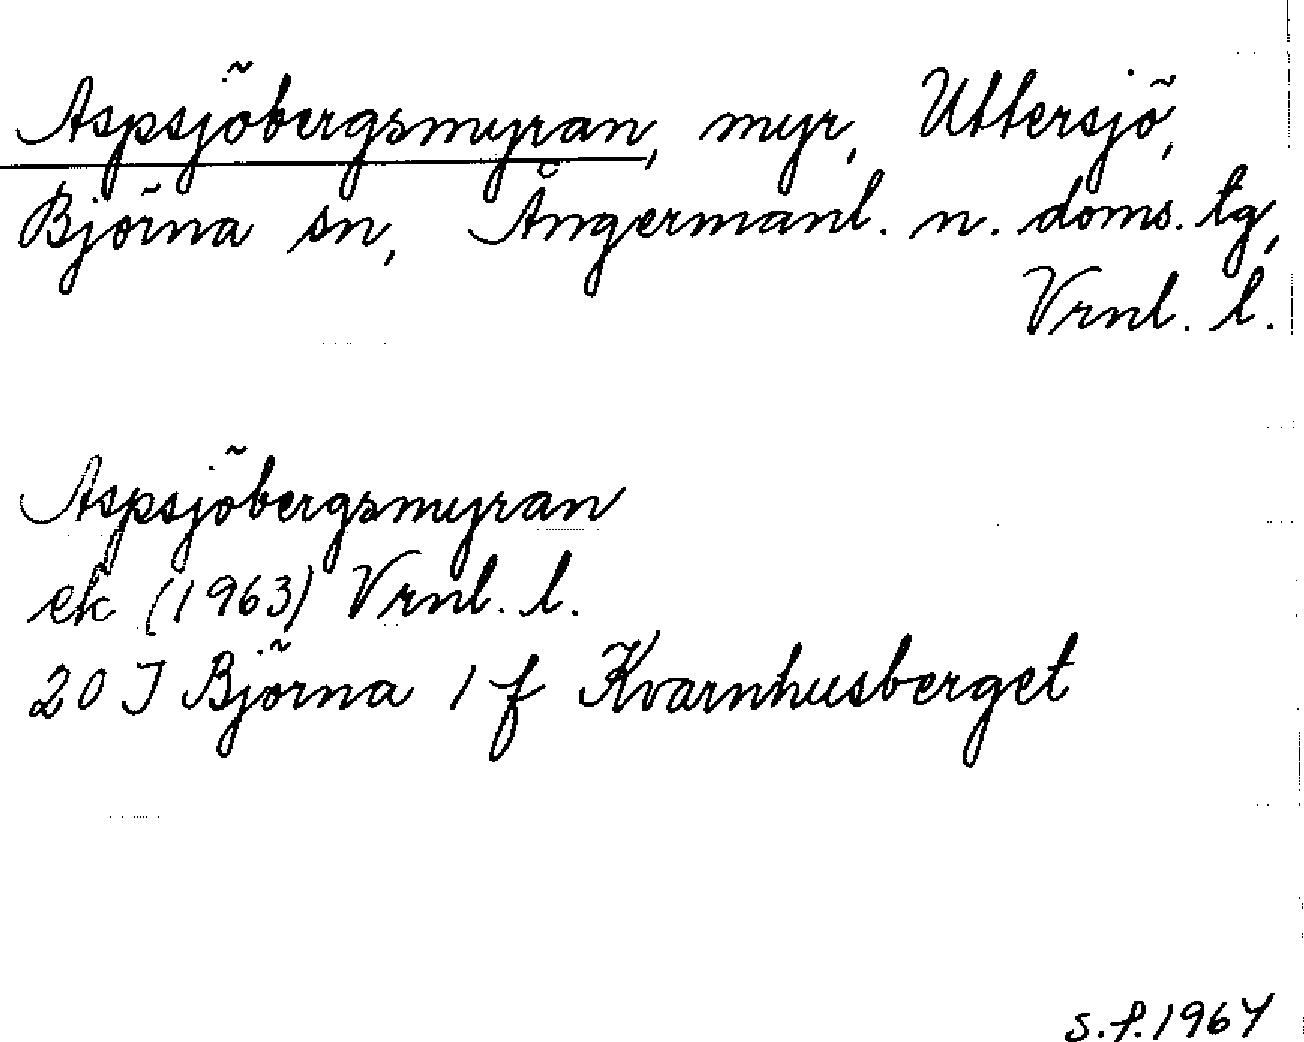 Aspsjöbergsmyran, myr, Uttersjö,
Björna sn, Ångermanl. n. doms. tg,
Vrnl. l.
Aspsjöbergsmyran
ek (1963) Vrnl. l.
20 I Björna 1 f Kvarnhusberget
s.f. 1967